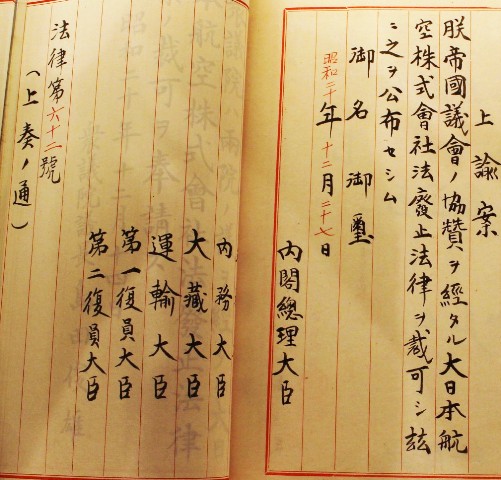 上諭案
朕帝國議會ノ協贊ヲ經タル大日本航
空株式會社法廢止法律ヲ裁可シ玆
ニ之ヲ公布セシム
御名御璽
昭和二十年十二月二十七日
內閣總理大臣
內務大臣
大藏大臣
運輸大臣
第一復員大臣
第二復員大臣
法律第六十二號
(上奏ノ通)